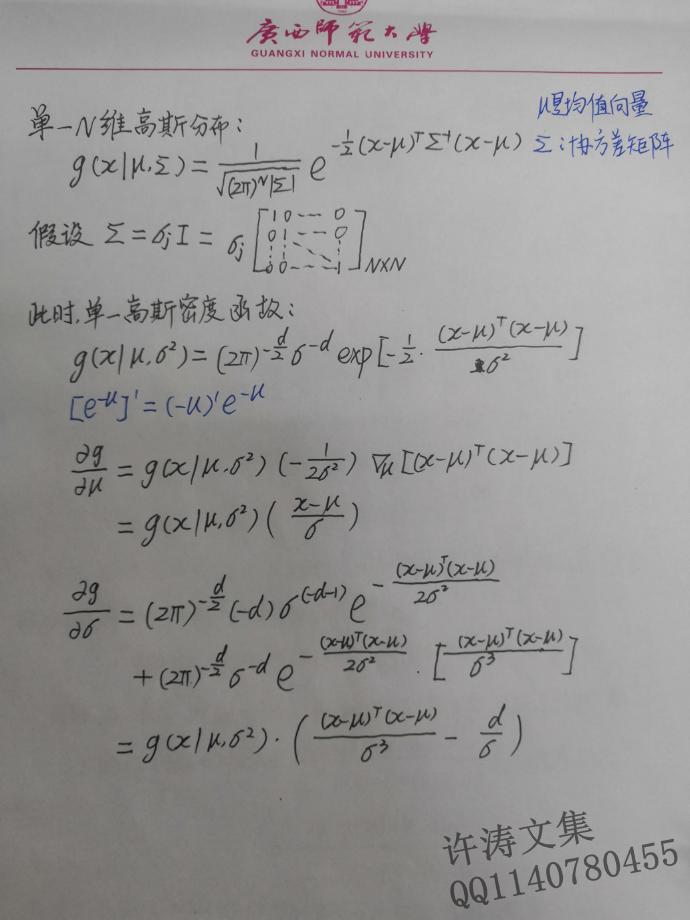 廣西师範大學
GUANGXI NORMAL UNIVERSITY
μ是均值向量
单一N维高斯分布：
g(x|μ,Σ) = 1/√((2π)^N|Σ|) e^{-1/2(x-μ)^T Σ^{-1}(x-μ)}
Σ：协方差矩阵
假设 Σ = σ_j I = σ_j [1 0 --- 0; 0 1 --- 0; 0 0 --- 1]_{N×N}
此时,单一高斯密度函数：
g(x|μ,σ²) = (2π)^{-d/2} σ^{-d} exp[-1/2 · (x-μ)^T(x-μ)/σ²]
[e^{-μ}]' = (-μ)' e^{-μ}
∂g/∂μ = g(x|μ,σ²) (-1/2σ²) ∇_μ [(x-μ)^T(x-μ)]
= g(x|μ,σ²) ( (x-μ)/σ )
∂g/∂σ = (2π)^{-d/2} (-d) σ^{(-d-1)} e^{-(x-μ)^T(x-μ)/2σ²}
+ (2π)^{-d/2} σ^{-d} e^{-(x-μ)^T(x-μ)/2σ²} · [(x-μ)^T(x-μ)/σ³]
= g(x|μ,σ²) · ( (x-μ)^T(x-μ)/σ³ - d/σ )
许涛文集
QQ1140780455